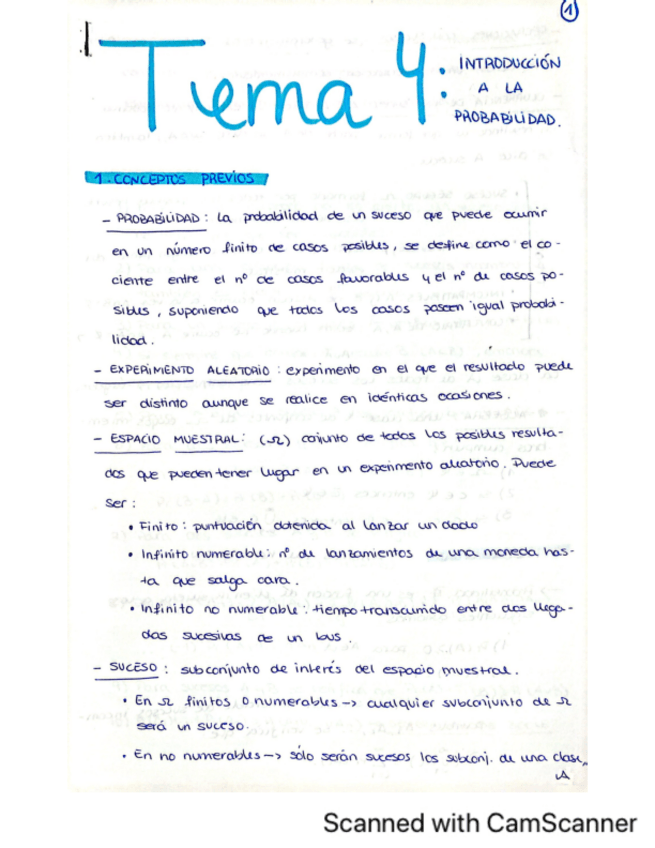 1
Tema 4: INTRODUCCIÓN
A LA
PROBABILIDAD.
1. CONCEPTOS PREVIOS
- PROBABILIDAD : La probabilidad de un suceso que puede ocurrir
en un número finito de casos posibles, se define como el co-
ciente entre el nº de casos favorables y el nº de casos po-
sibles, suponiendo que todos los casos poseen igual probabi-
lidad.
- EXPERIMENTO ALEATORIO : experimento en el que el resultado puede
ser distinto aunque se realice en idénticas ocasiones.
- ESPACIO MUESTRAL: (Ω) conjunto de todos los posibles resulta-
dos que pueden tener lugar en un experimento aleatorio. Puede
ser :
• Finito : puntuación obtenida al lanzar un dado
• Infinito numerable: nº de lanzamientos de una moneda has-
ta que salga cara.
• Infinito no numerable : tiempo transcurrido entre dos llega-
das sucesivas de un bus.
- SUCESO : subconjunto de interés del espacio muestral.
• En Ω finitos o numerables -> cualquier subconjunto de Ω
será un suceso.
• En no numerables -> sólo serán sucesos los subconj. de una clase
A
Scanned with CamScanner